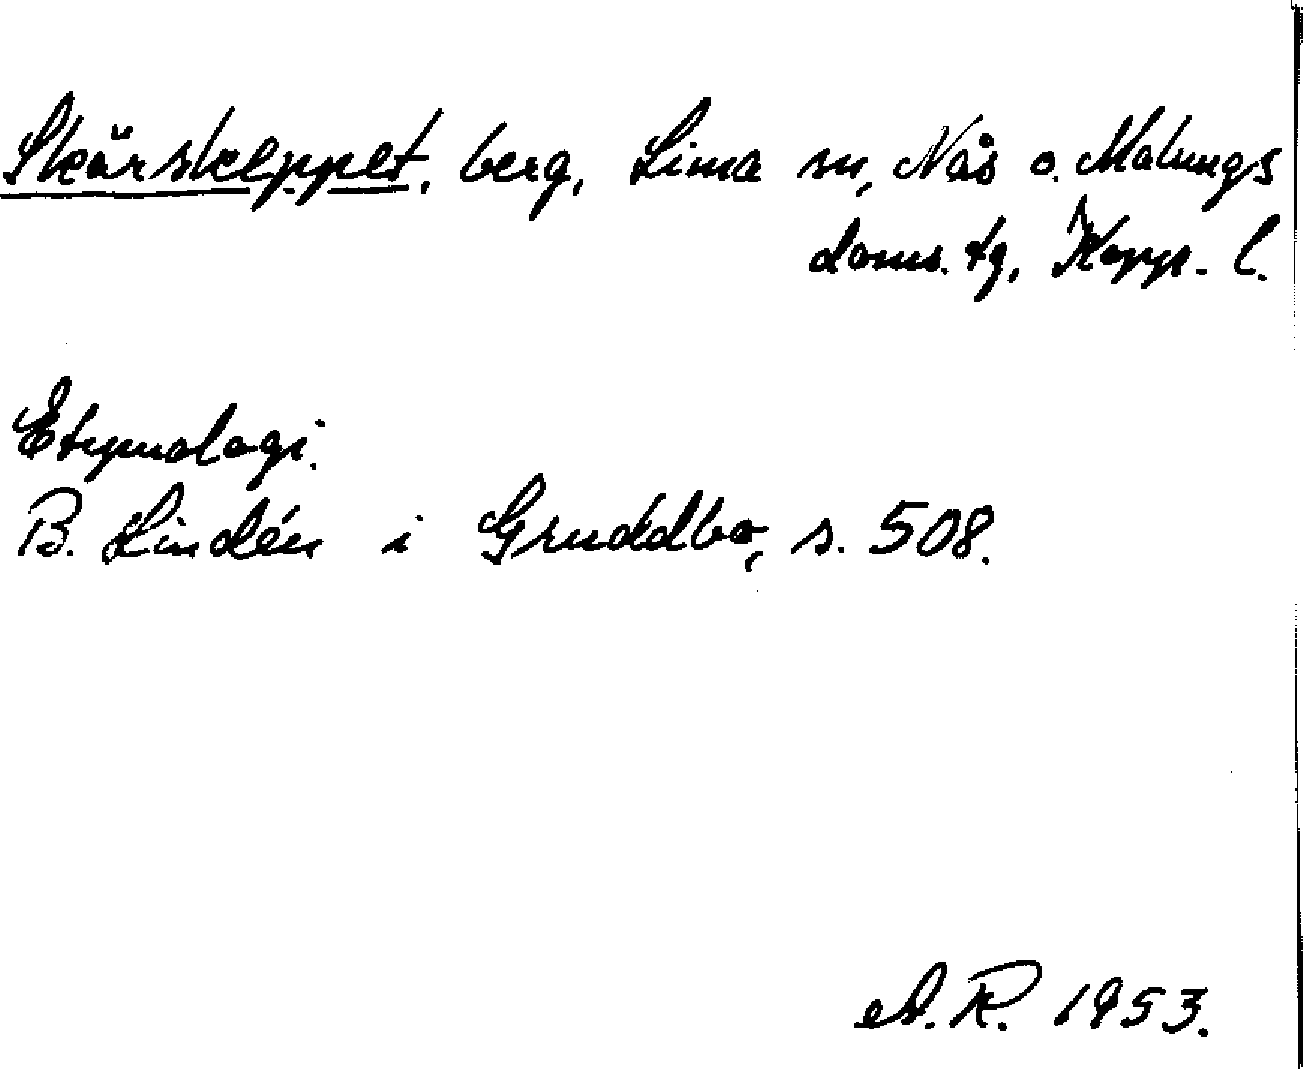 Skärskeppet, berg, Lima sn, Nås o. Malungs
doms. tg, Kopp. l.
Etymologi.
B. Lindén i Gruddbo, s. 508.
A. R. 1953.